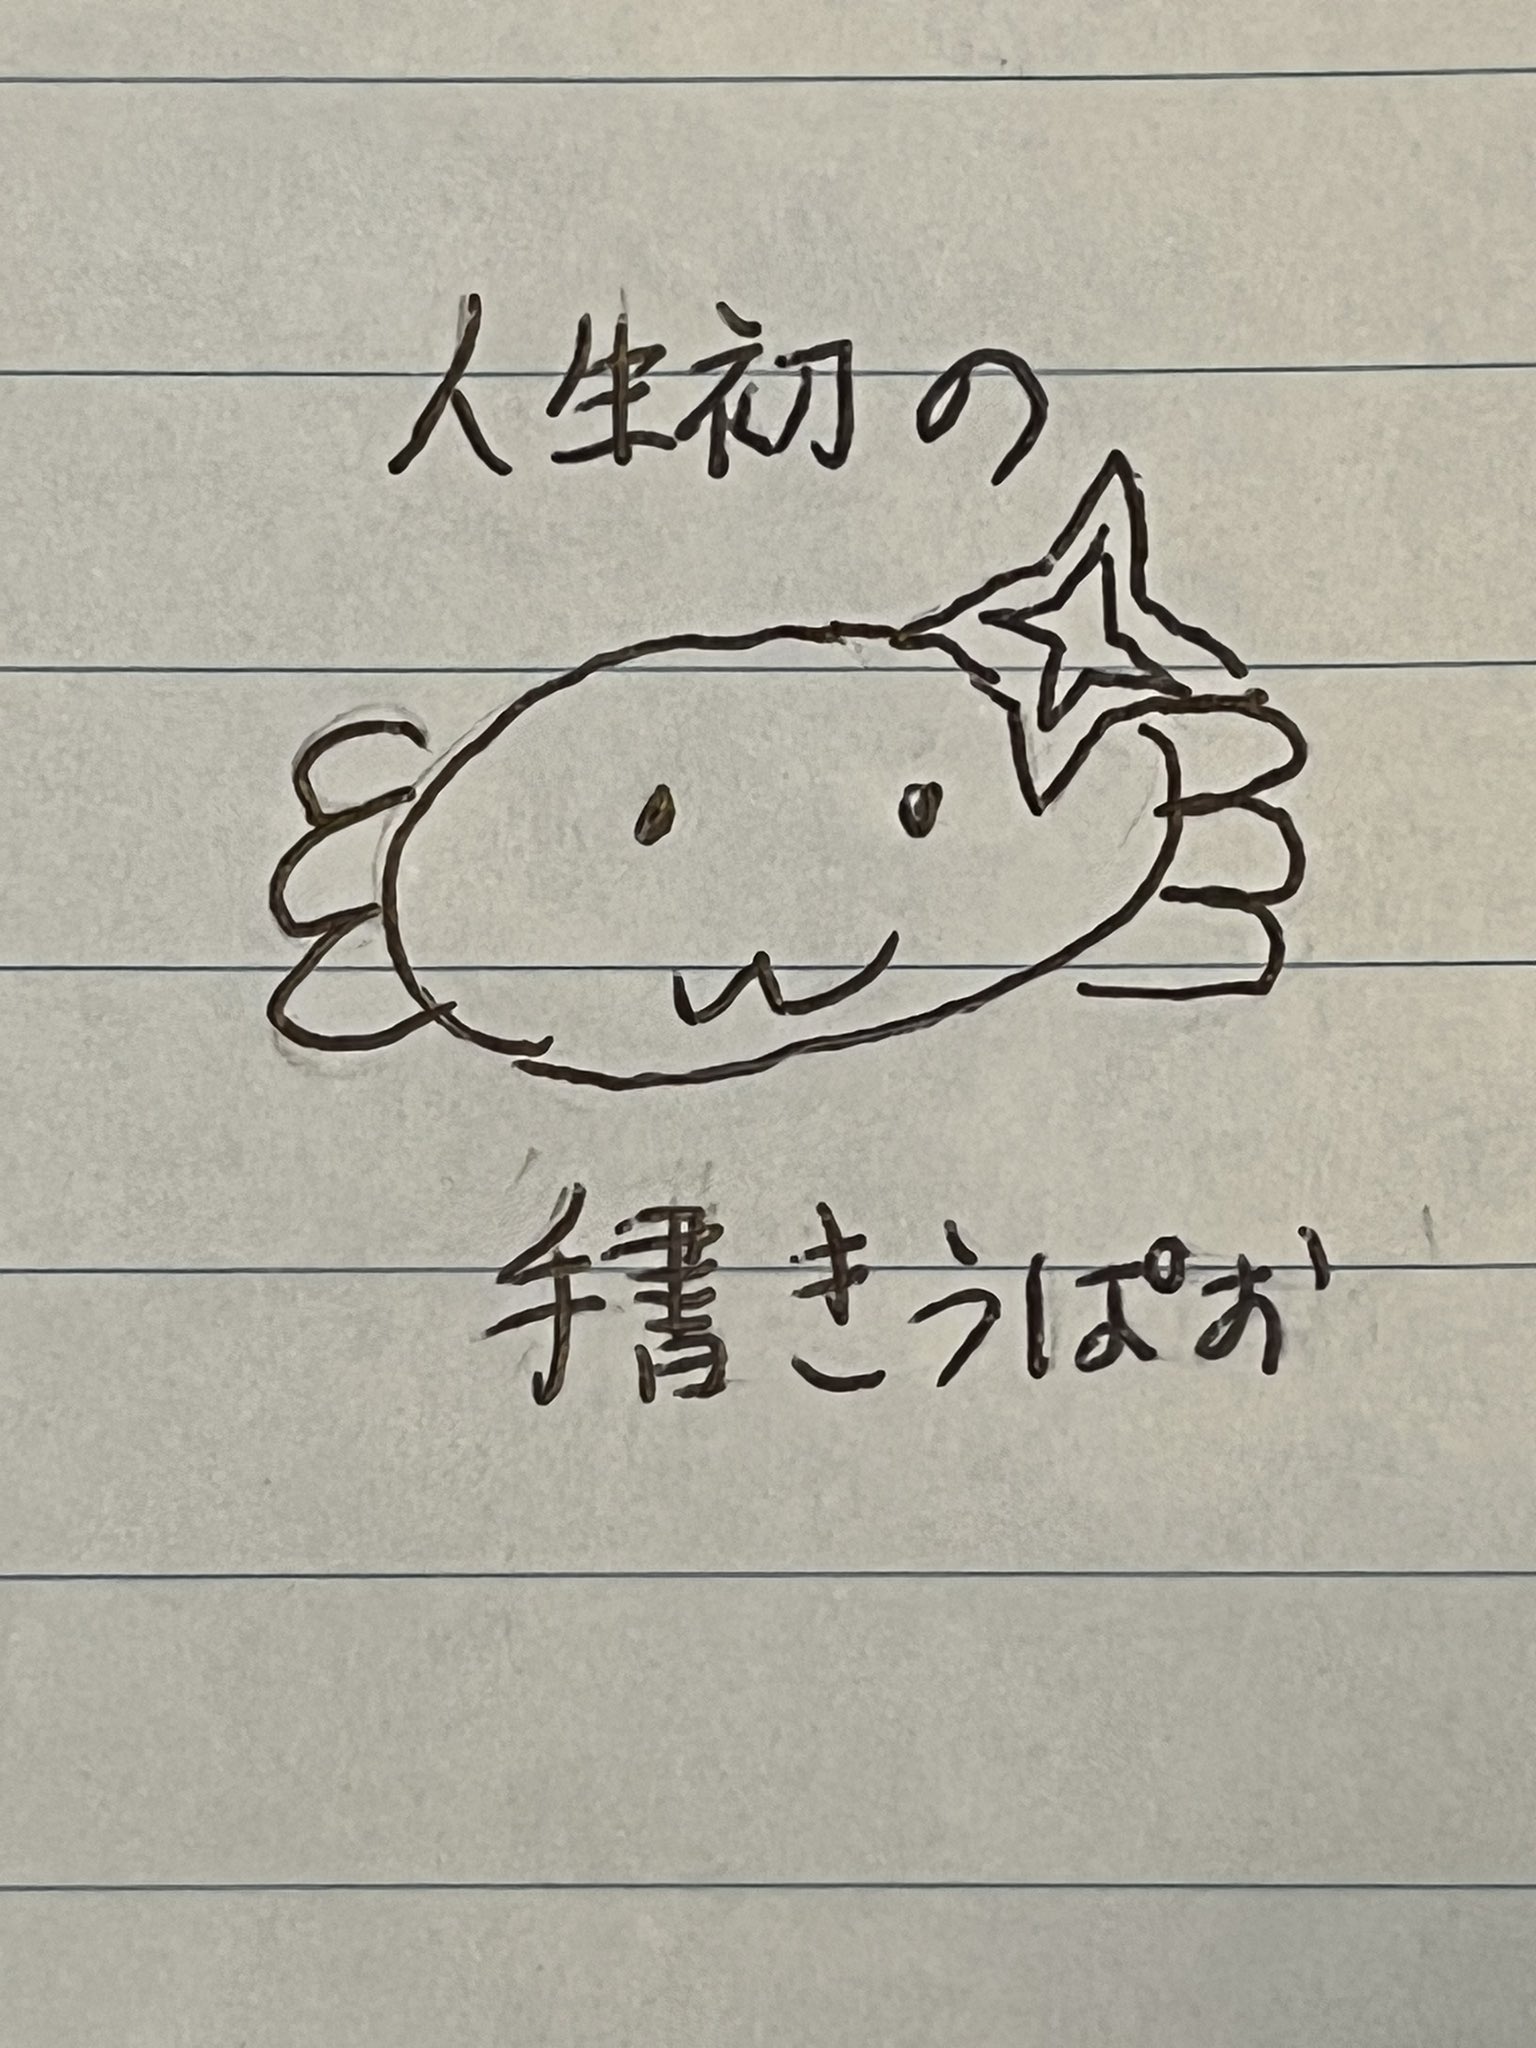 人生初の
手書きうぱお